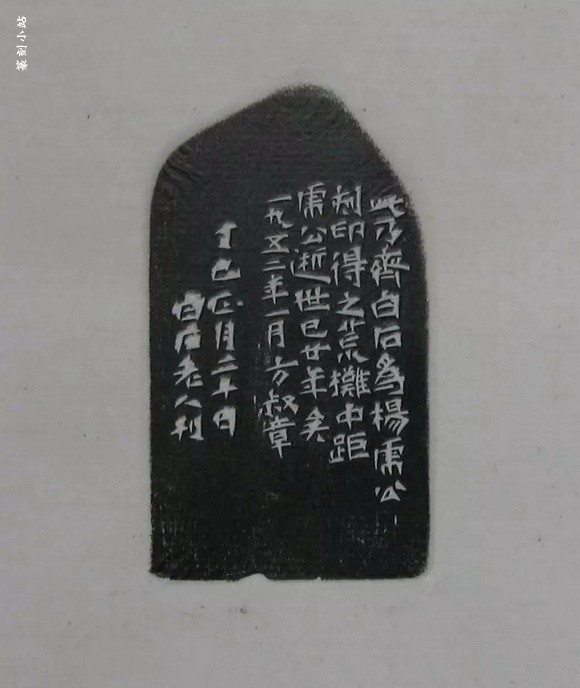 篆刻小站
此乃齊白石爲楊虎公
刻印得之荒攤中距
虎公逝世已廿年矣
一九五二年一月方叔章
丁巳正月二十日
白石老人刻